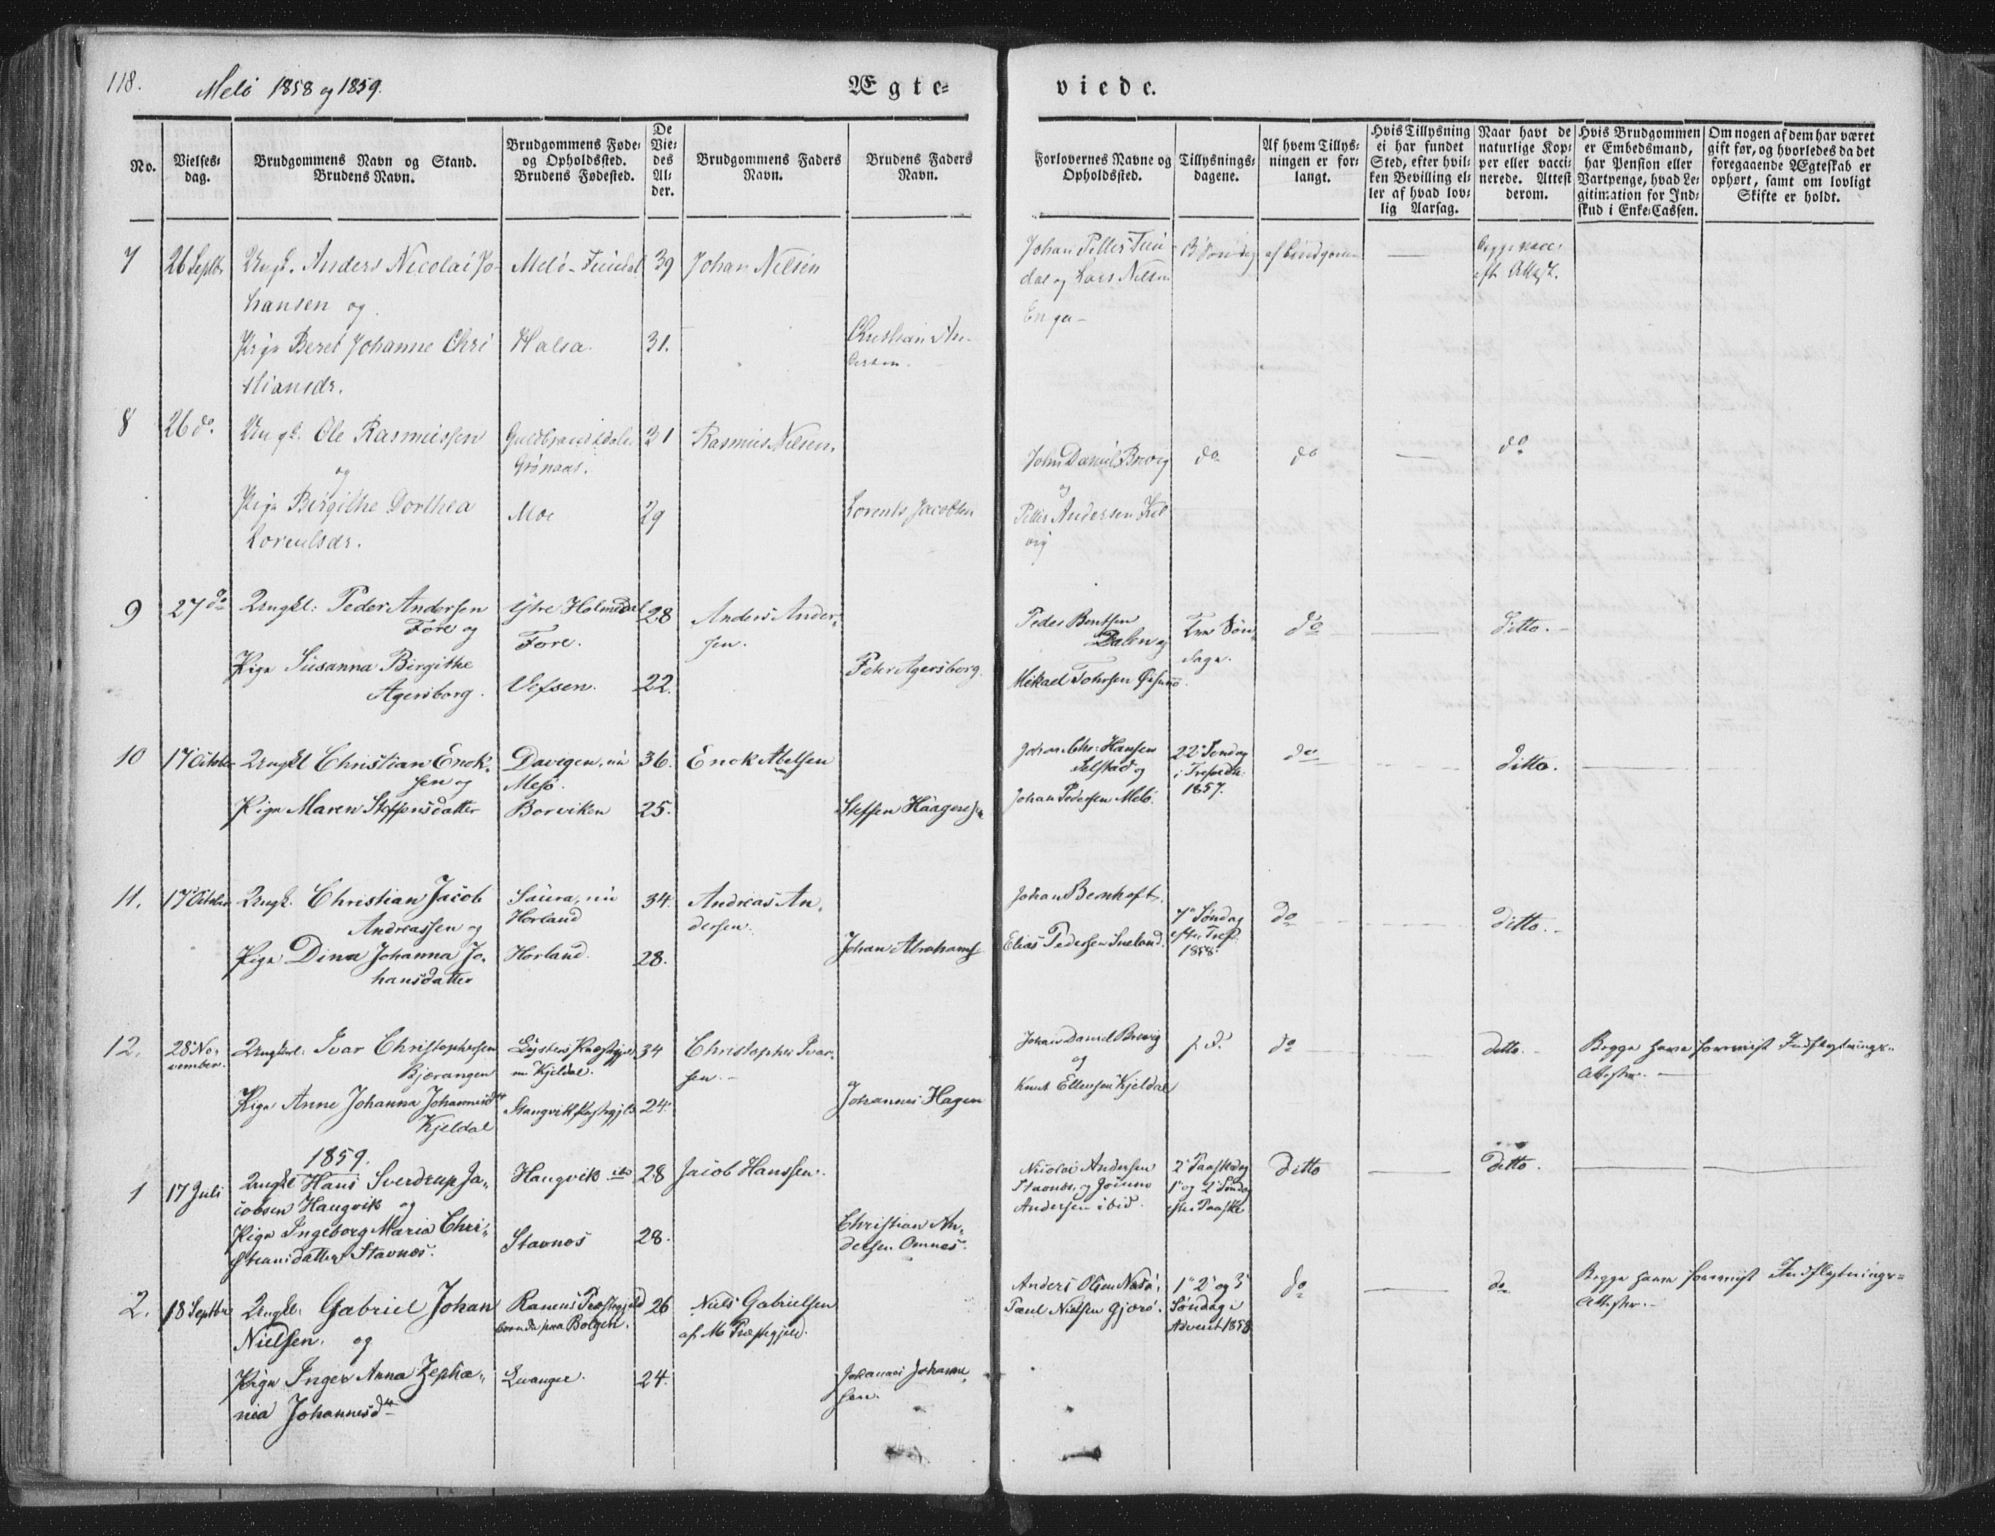 118.
Melö 1858 og 1859.
Ægte-
viede.
No.
Vielses-
dag.
Brudgommens Navn og Stand.
Brudens Navn.
Brudgommens Føde-
og Opholdssted.
Brudens Fødested.
De
Vie-
des
Al-
der.
Brudgommens Faders
Navn.
Brudens Faders
Navn.
Forlovernes Navne og
Opholdssted.
Tillysnings-
dagene.
Af hvem Tillys-
ningen er for-
langt.
Hvis Tillysning
ei har fundet
Sted, efter hvil-
ken Bevilling el-
ler af hvad lov-
lig Aarsag.
Naar havt de
naturlige Kop-
per eller vacci-
nerede. Attest
derom.
Hvis Brudgommen
er Embedsmand,
har Pension eller
Vartpenge, hvad Le-
gitimation for Ind-
skud i Enke-Cassen.
Om nogen af dem har været
gift før, og hvorledes da det
foregaaende Ægteskab er
ophørt, samt om lovligt
Skifte er holdt.
7
26 Septbr
Ungk. Anders Nicolai Jo-
hansen og
Melö
39
Johan Nilsen
Johan Petter
dal og Lars Nilsen
Enga
Pige Beret Johanne Chri
stiansdr.
Halsa
31.
Christian An-
dersen.
8
26 do.
Ungk. Ole Rasmussen
og
Grönaas.
31
Rasmus Nilsen.
John Daniel Brevig
og
do
do
do
Pige Birgithe Dorthea
Lorentsdr.
Moe
29
Lorents Jacobsen
Petter Andersen Kil
vig
9
27 do
Ungkl: Peder Andersen
Fore og
Ytre Holmedal
Fore.
28
Anders Ander-
sen.
Peder Bentsen
Dalen og
Tre Søn-
dage.
do
ditto.
Pige Susanna Birgithe
Agersborg.
Vefsen.
22.
Peter Agersborg.
Mikael Tohrsen
10
17 October
Ungkl Christian Enok-
sen og
Davigen, nu
Mesö.
36.
Enok Abelsen
Johan Chr: Hansen
Selstad og
22 Søndag
i Trefoldt.
1857.
do
ditto.
Pige Maren Steffensdatter
Borviken
25.
Steffen Haagensen
Johan Pedersen Melö.
11.
17 October
Ungk. Christian Jacob
Andreassen og
Saura, nu
Horland
34.
Andreas An-
dersen.
Johan Bernhoft.
7 Søndag
efter Tref.
1858.
do
ditto.
Pige Dina Johanna Jo-
hansdatter
Horland.
28.
Johan Abrahams
Elias Pedersen
12.
28 No-
vember.
Ungkarl: Ivar Christophersen
Bjærangen
Lysters Præstegjeld
nu Kjeldal.
34
Christopher Ivar-
sen.
Johan Daniel Brevig
og
p. d.
do
ditto.
Begge have forevist Indflytnings-
Attester.
Pige Anne Johanna Johannesdtr
Kjeldal
Stangvik Præstegjeld
24.
Johannes Hagen
Knut Ellevsen Kjeldal
1859.
1
17 Juli
Ungkl Hans Sverdrup Ja-
cobsen Haugvik og
Haugvik
28
Jacob Hanssen.
Nicolai Andersen
Stavnes, og
Andersen ibid.
2 Paaskedag
1 og 2 Søndag
efter Paaske
ditto
ditto.
Pige Ingeborg Maria Chri-
stiansdatter Stavnes.
Stavnes
28.
Christian An-
dersen Omnes.
2.
18 Septbr
Ungkl. Gabriel Johan
Nielsen. og
Ranens Præstegjeld
boende paa Bolgen.
26
Niels Gabrielsen
af M Præstegjeld.
Anders Olsen
Paul Nielsen Gjerö.
1 2 og 3
Søndag i
Advent 1858
do
do
Begge have forevist Indflytnings-
Attester.
Pige Inger Anna Zepha-
nia Johannesdtr
Qvanger.
24.
Johannes Johanne-
sen.